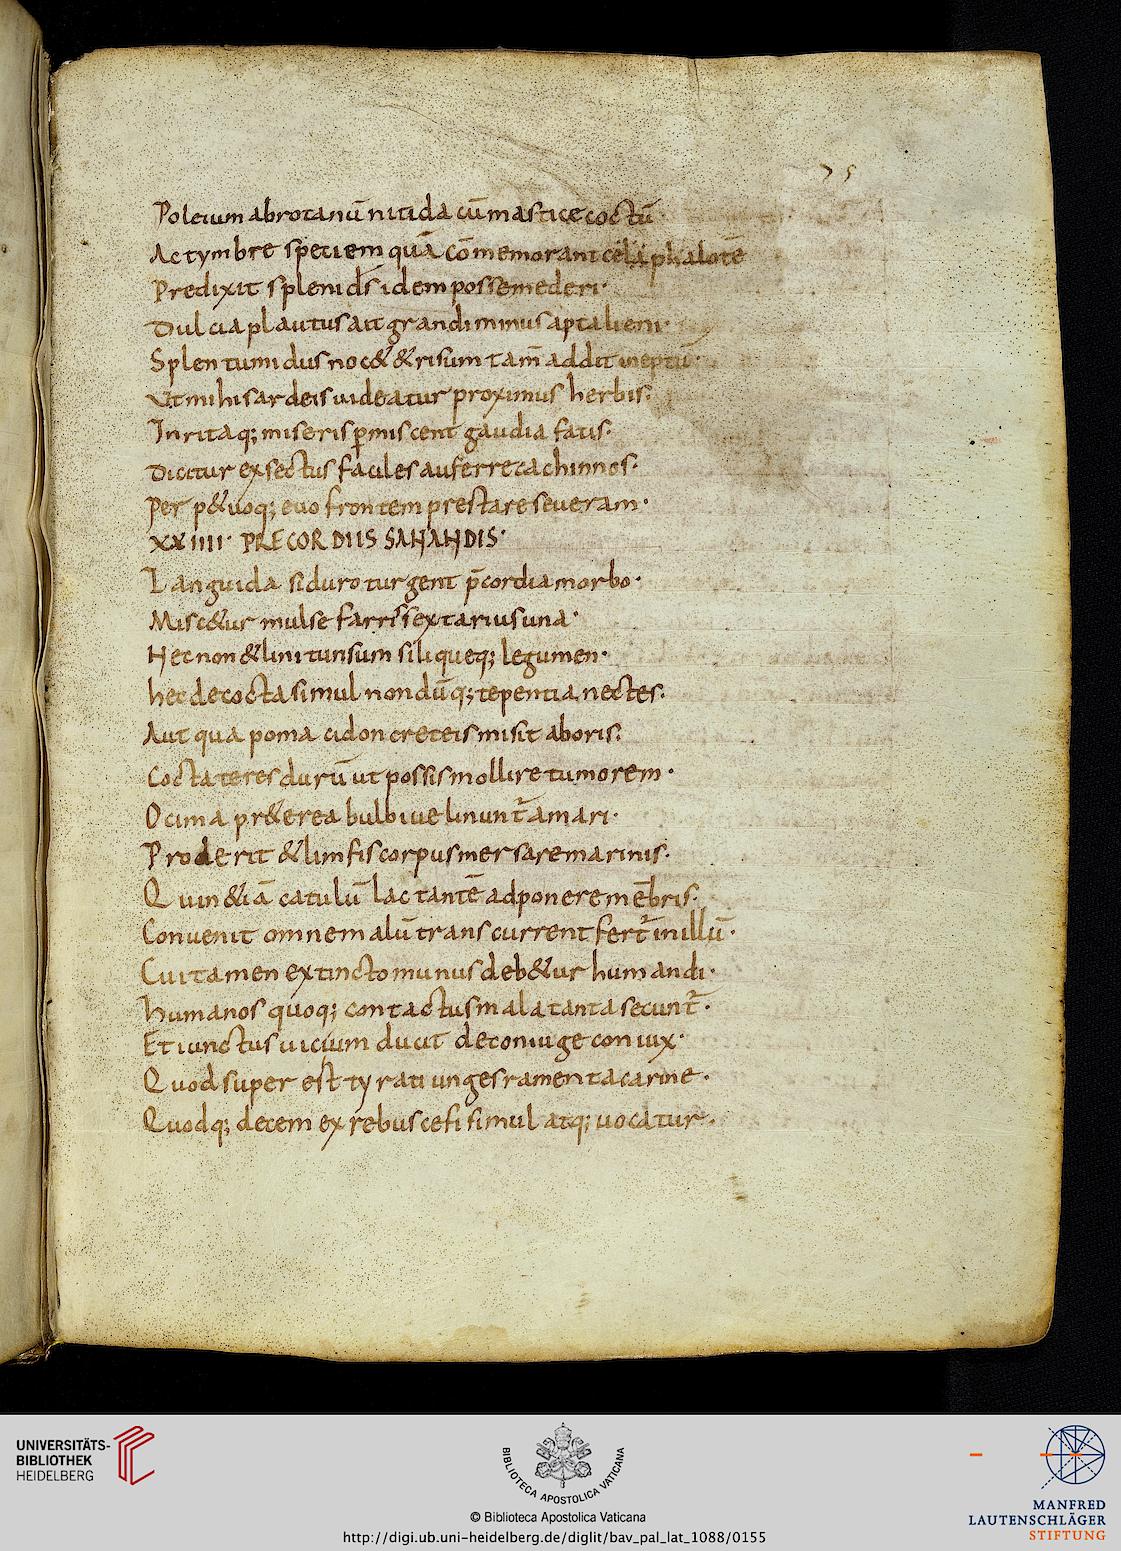 75
Poleium abrotanū nitida cū mastice coctū
Ac tymbre speciem quā cōmemorant
Predixit splenid̄s idem posse mederi·
Dulcia plautus ait grandi minus apta lieni·
Splen tumidus noc& & risum tam̄ addit ineptū·
Ut mihi sardeis uideatur proximus herbis.
Inritaq; miseris ꝑmiscent gaudia fatis·
Dicitur exsectus faciles auferre cachinnos·
Per p&uoq; euo frontem prestare seueram·
XXIIII· PRECORDIIS SANANDIS·
Languida si duro turgent p̄cordia morbo·
Misc&ur mulse farris sextarius una·
Nec non & lini tunsum siliqueq; legumen·
hec decocta simul nondūq; tepentia nectes·
Aut qua poma cidon creteis misit aboris.
Cocta teres durū ut possis mollire tumorem·
Ocima pr&erea bulbiue linunt̄ amari·
Proderit & limfis corpus mersare marinis·
Quin &iā catulū lactantē adponere mēbris·
Conuenit omnem alū transcurrent fert̄ in illū·
Cui tamen extincto munus deb&ur humandi·
Humanos quoq; contactus mala tanta secunt̄·
Et iunctus uicium ducit de coniuge coniux·
Quod super est tyrati unges ramenta carine·
Quodq; decem ex rebus cefi simul atq; uocatur·
UNIVERSITÄTS-
BIBLIOTHEK
HEIDELBERG
BIBLIOTECA APOSTOLICA VATICANA
© Biblioteca Apostolica Vaticana
http://digi.ub.uni-heidelberg.de/diglit/bav_pal_lat_1088/0155
MANFRED
LAUTENSCHLÄGER
STIFTUNG